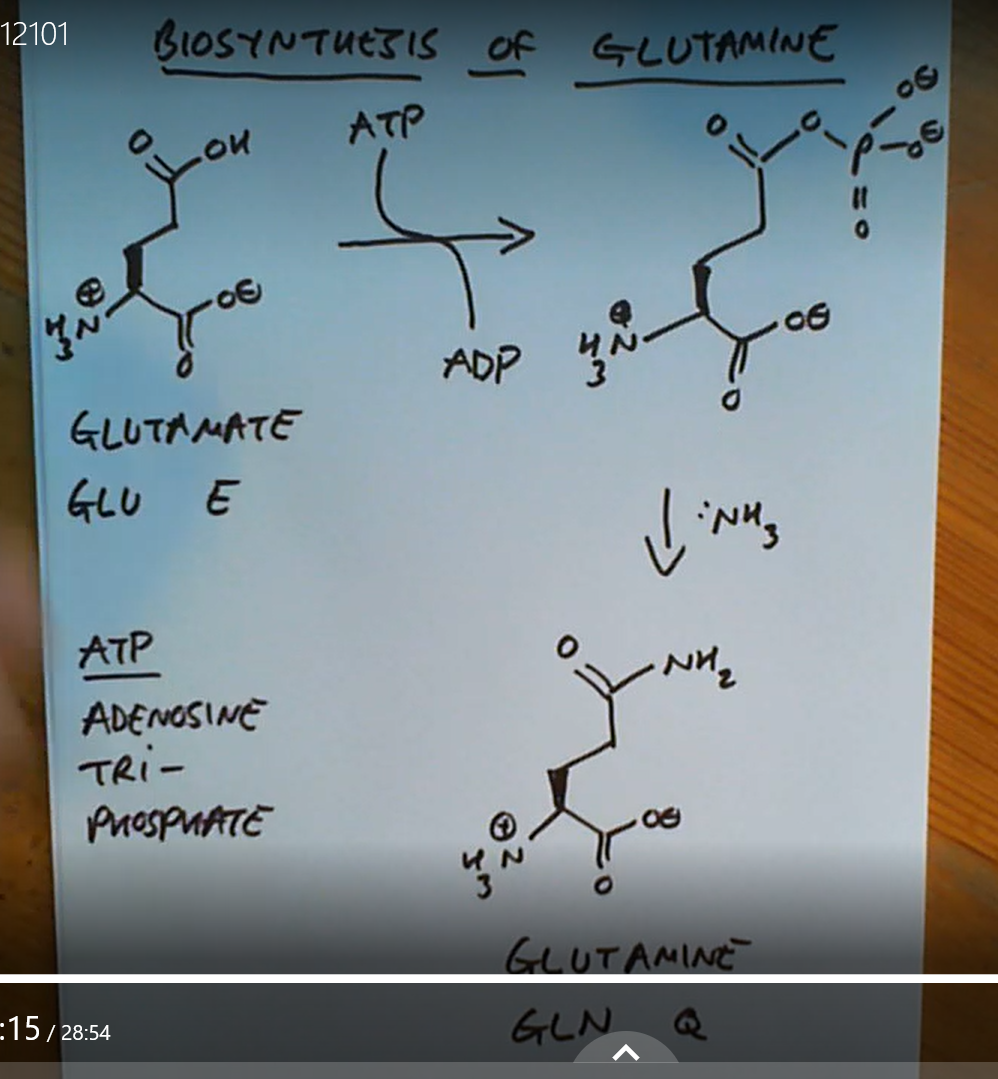 12101
BIOSYNTHESIS OF GLUTAMINE
ATP
O
OH
⊕
H3N
O⊖
O
ADP
O
O
P
O⊖
O⊖
O
⊕
H3N
O⊖
O
GLUTAMATE
GLU E
:NH3
ATP
ADENOSINE
TRi-
PHOSPHATE
O
NH2
⊕
H3N
O⊖
O
GLUTAMINE
GLN Q
:15 / 28:54